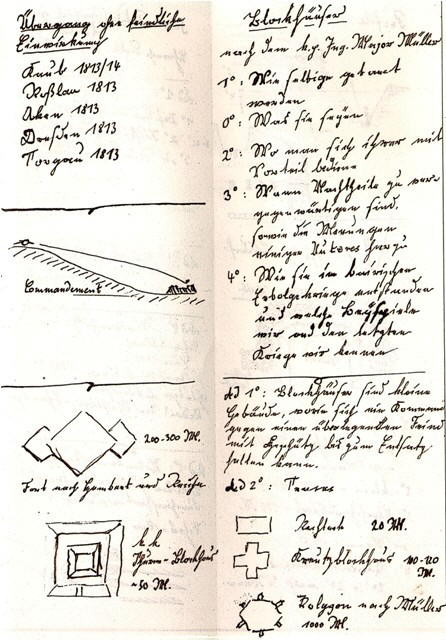 Übergang ohne feindliche
Einwirkung
Kaub 1813/14
Roßlau 1813
Aken 1813
Dresden 1813
Torgau 1813
Commandement
200-300 M.
Fort nach
k k
Thurm-Blockhaus
~50 M.
Blockhäuser
nach dem k.p. Ing. Major Müller
1°: Wie selbige gebaut
worden
0°: Was sie seyen
2°: Wo man sich ihrer mit
Vorteil bediene
3°: Wann Nachtheile zu ver-
gegenwärtigen sind,
sowie die Meinungen
einiger Autores hierzu
4°: Wie sie im bairischen
Erbfolgekriege entstanden
und welche Beyspiele
wir aus den letzten
Kriege wir kennen
Ad 1°: Blockhäuser sind kleine
Gebäude, worin sich ein
gegen einen überlegenden Feind
mit Geschütz bis zum Entsatz
halten kann.
Ad 2°:
Rechteck 20 M.
Kreutzblockhaus 110-120
M.
Polygon nach Müller
1000 M.